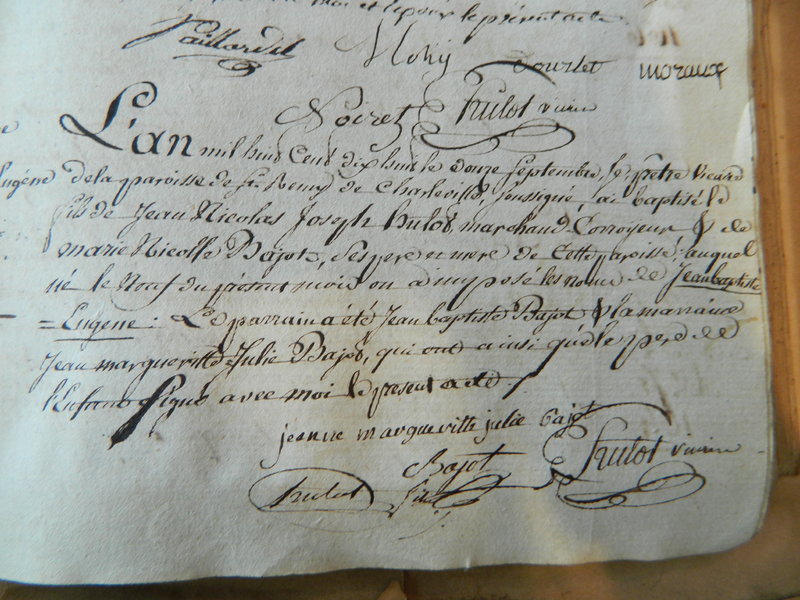 moi et le père le présent acte
Paillardit
Moniy Tourlet moraux
Noiret hulot vicaire
L'an mil huit Cent dix huit le douze Septembre, le prêtre vicaire
Eugène de la paroisse de St. Remy de Charleville, soussigné, ai baptisé le
fils de Jean Nicolas Joseph hulot, marchand Corroyeur & de
marie Nicolle Bajot, Ses père et mere de Cette paroisse: auquel
né le Neuf du présent mois on a imposé les noms de Jean baptiste
=Eugene: Le parrain a été Jean baptiste Bajot & la marraine
Jean margueritte=Julie Bajot, qui ont ainsi que le pere de
l'Enfant Signé avec moi le present acte.
jeanne margueritte julie bajot
Bajot hulot vicaire
hulot fils